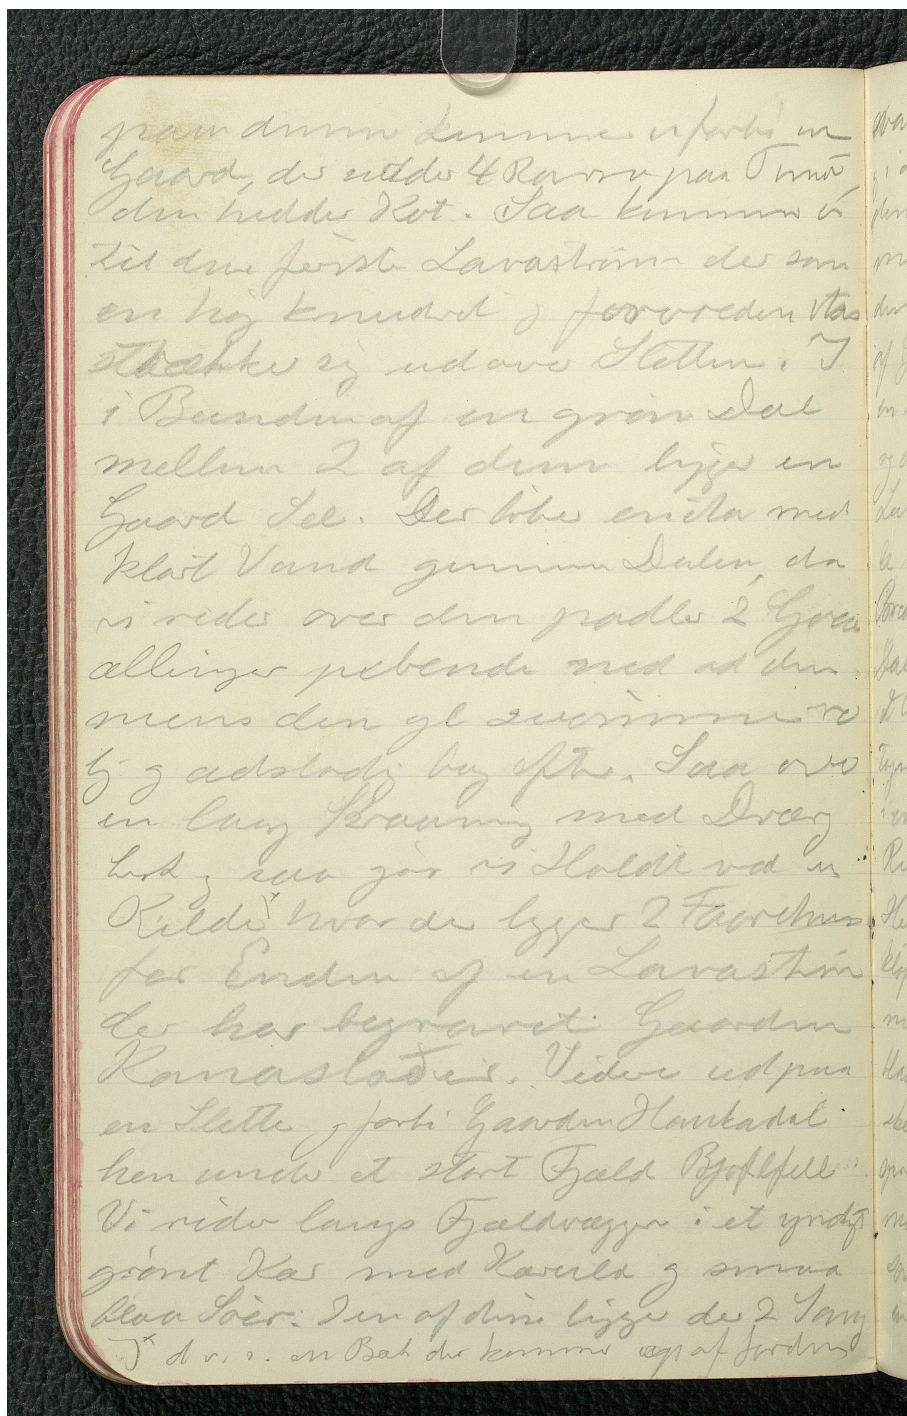 paa denne kommer vi forbi en
Gaard, der
den hedder Kot. Saa kommer vi
til den første Lavastrøm der som
en høj knudret og forvreden
strækker sig udover Sletten. I
i Bunden af en grøn Dal
mellem 2 af dem ligger en
Gaard Sel. Der løber en med
klart Vand gennem Dalen, da
vi rider over den padler 2 Graa
ællinger pebende ned ad den
mens den gl svømmer ro
lig og adstadig bag efter. Saa over
en lang Skraaning med Dværg
birk og saa gør vi Holdt ved en
Kilde x hvor der ligger 2 Faarehuse
for Enden af en Lavastrøm
der har begravet Gaarden
Videre ud paa
en Slette og forbi Gaarden Haukadal
hen under et stort Fjæld Bjolfell
Vi rider langs Fjældvæggen i et yndigt
grønt Kær med Kæruld og smaa
blaa Søer. I en af disse ligger der 2 Sang
x d.v.s. en Bæk der kommer op af Jorden